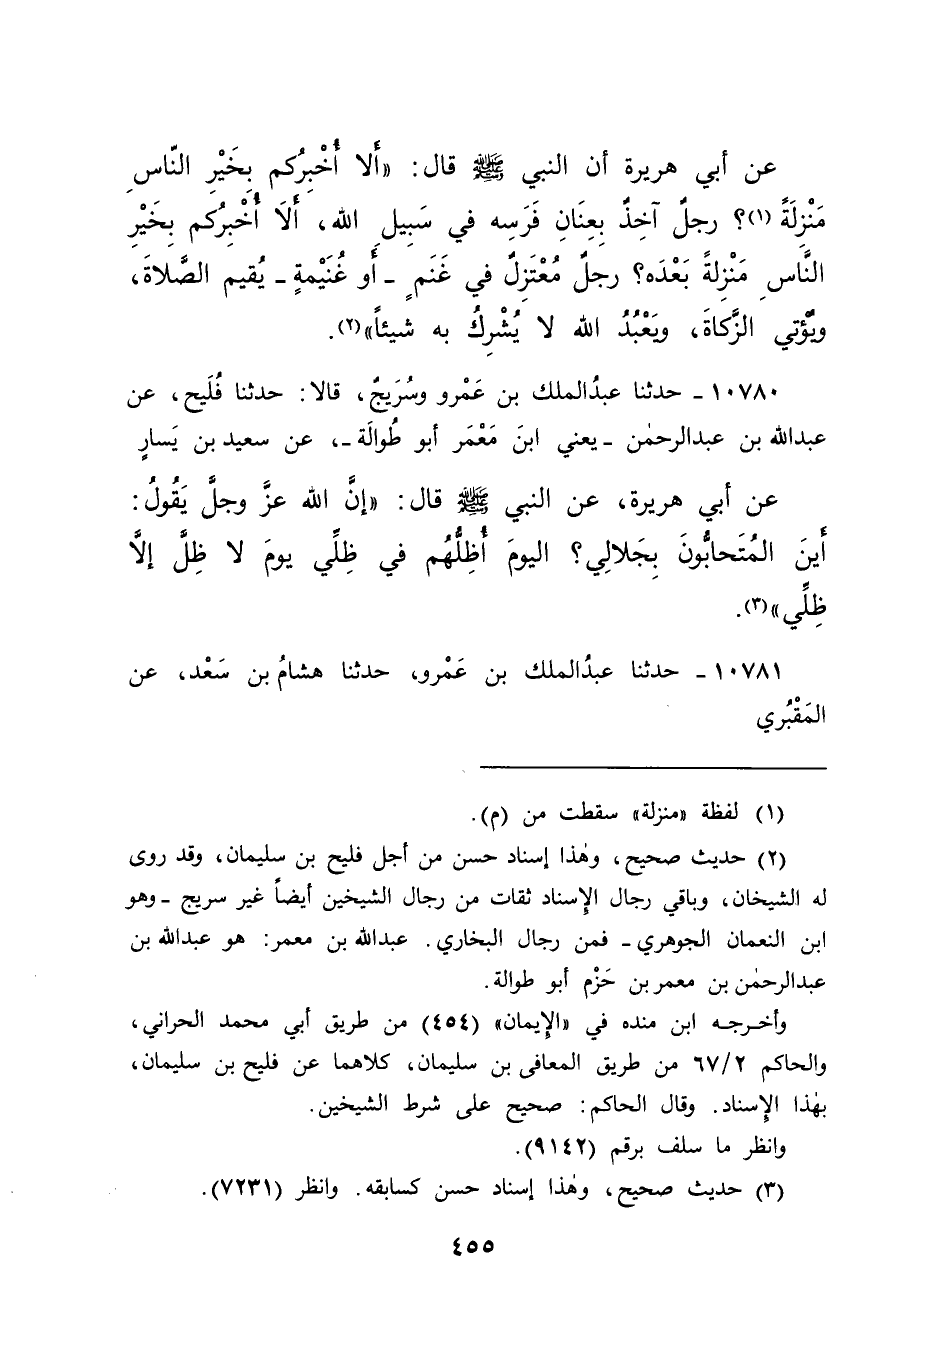 عن أبي هريرة أن النبي ﷺ قال: «أَلا أُخْبِرُكم بِخَيْرِ النّاسِ
مَنْزِلَةً (١)؟ رجلٌ آخِذٌ بِعِنَانِ فَرَسِه في سَبِيلِ الله، أَلَا أُخْبِرُكم بِخَيْرِ
النَّاسِ مَنْزِلةً بَعْدَه؟ رجلٌ مُعْتَزِلٌ في غَنَمٍ ـ أَو غُنَيْمةٍ ـ يُقيم الصَّلاةَ،
ويُؤتي الزَّكاةَ، ويَعْبُدُ الله لا يُشْرِكُ به شيئاً»(٢).
١٠٧٨٠ ـ حدثنا عبدُالملك بن عَمْرو وسُرَيجٌ، قالا: حدثنا فُلَيح، عن
عبدالله بن عبدالرحمٰن ـ يعني ابنَ مَعْمَر أبو طُوالَة ـ، عن سعيد بن يَسارٍ
عن أبي هريرة، عن النبي ﷺ قال: «إنَّ الله عزَّ وجلَّ يَقُولُ:
أَينَ المُتَحابُّونَ بِجَلالِي؟ اليومَ أُظِلُّهُم في ظِلِّي يومَ لا ظِلَّ إلَّا
ظِلِّي»(٣).
١٠٧٨١ ـ حدثنا عبدُالملك بن عَمْرو، حدثنا هشامُ بن سَعْد، عن
المَقْبُري
(١) لفظة «منزلة» سقطت من (م).
(٢) حديث صحيح، وهٰذا إسناد حسن من أجل فليح بن سليمان، وقد روى
له الشيخان، وباقي رجال الإسناد ثقات من رجال الشيخين أيضاً غير سريج ـ وهو
ابن النعمان الجوهري ـ فمن رجال البخاري. عبدالله بن معمر: هو عبدالله بن
عبدالرحمٰن بن معمر بن حَزْم أبو طوالة.
وأخرجه ابن منده في «الإيمان» (٤٥٤) من طريق أبي محمد الحراني،
والحاكم ٦٧/٢ من طريق المعافى بن سليمان، كلاهما عن فليح بن سليمان،
بهٰذا الإسناد. وقال الحاكم: صحيح على شرط الشيخين.
وانظر ما سلف برقم (٩١٤٢).
(٣) حديث صحيح، وهٰذا إسناد حسن كسابقه. وانظر (٧٢٣١).
٤٥٥